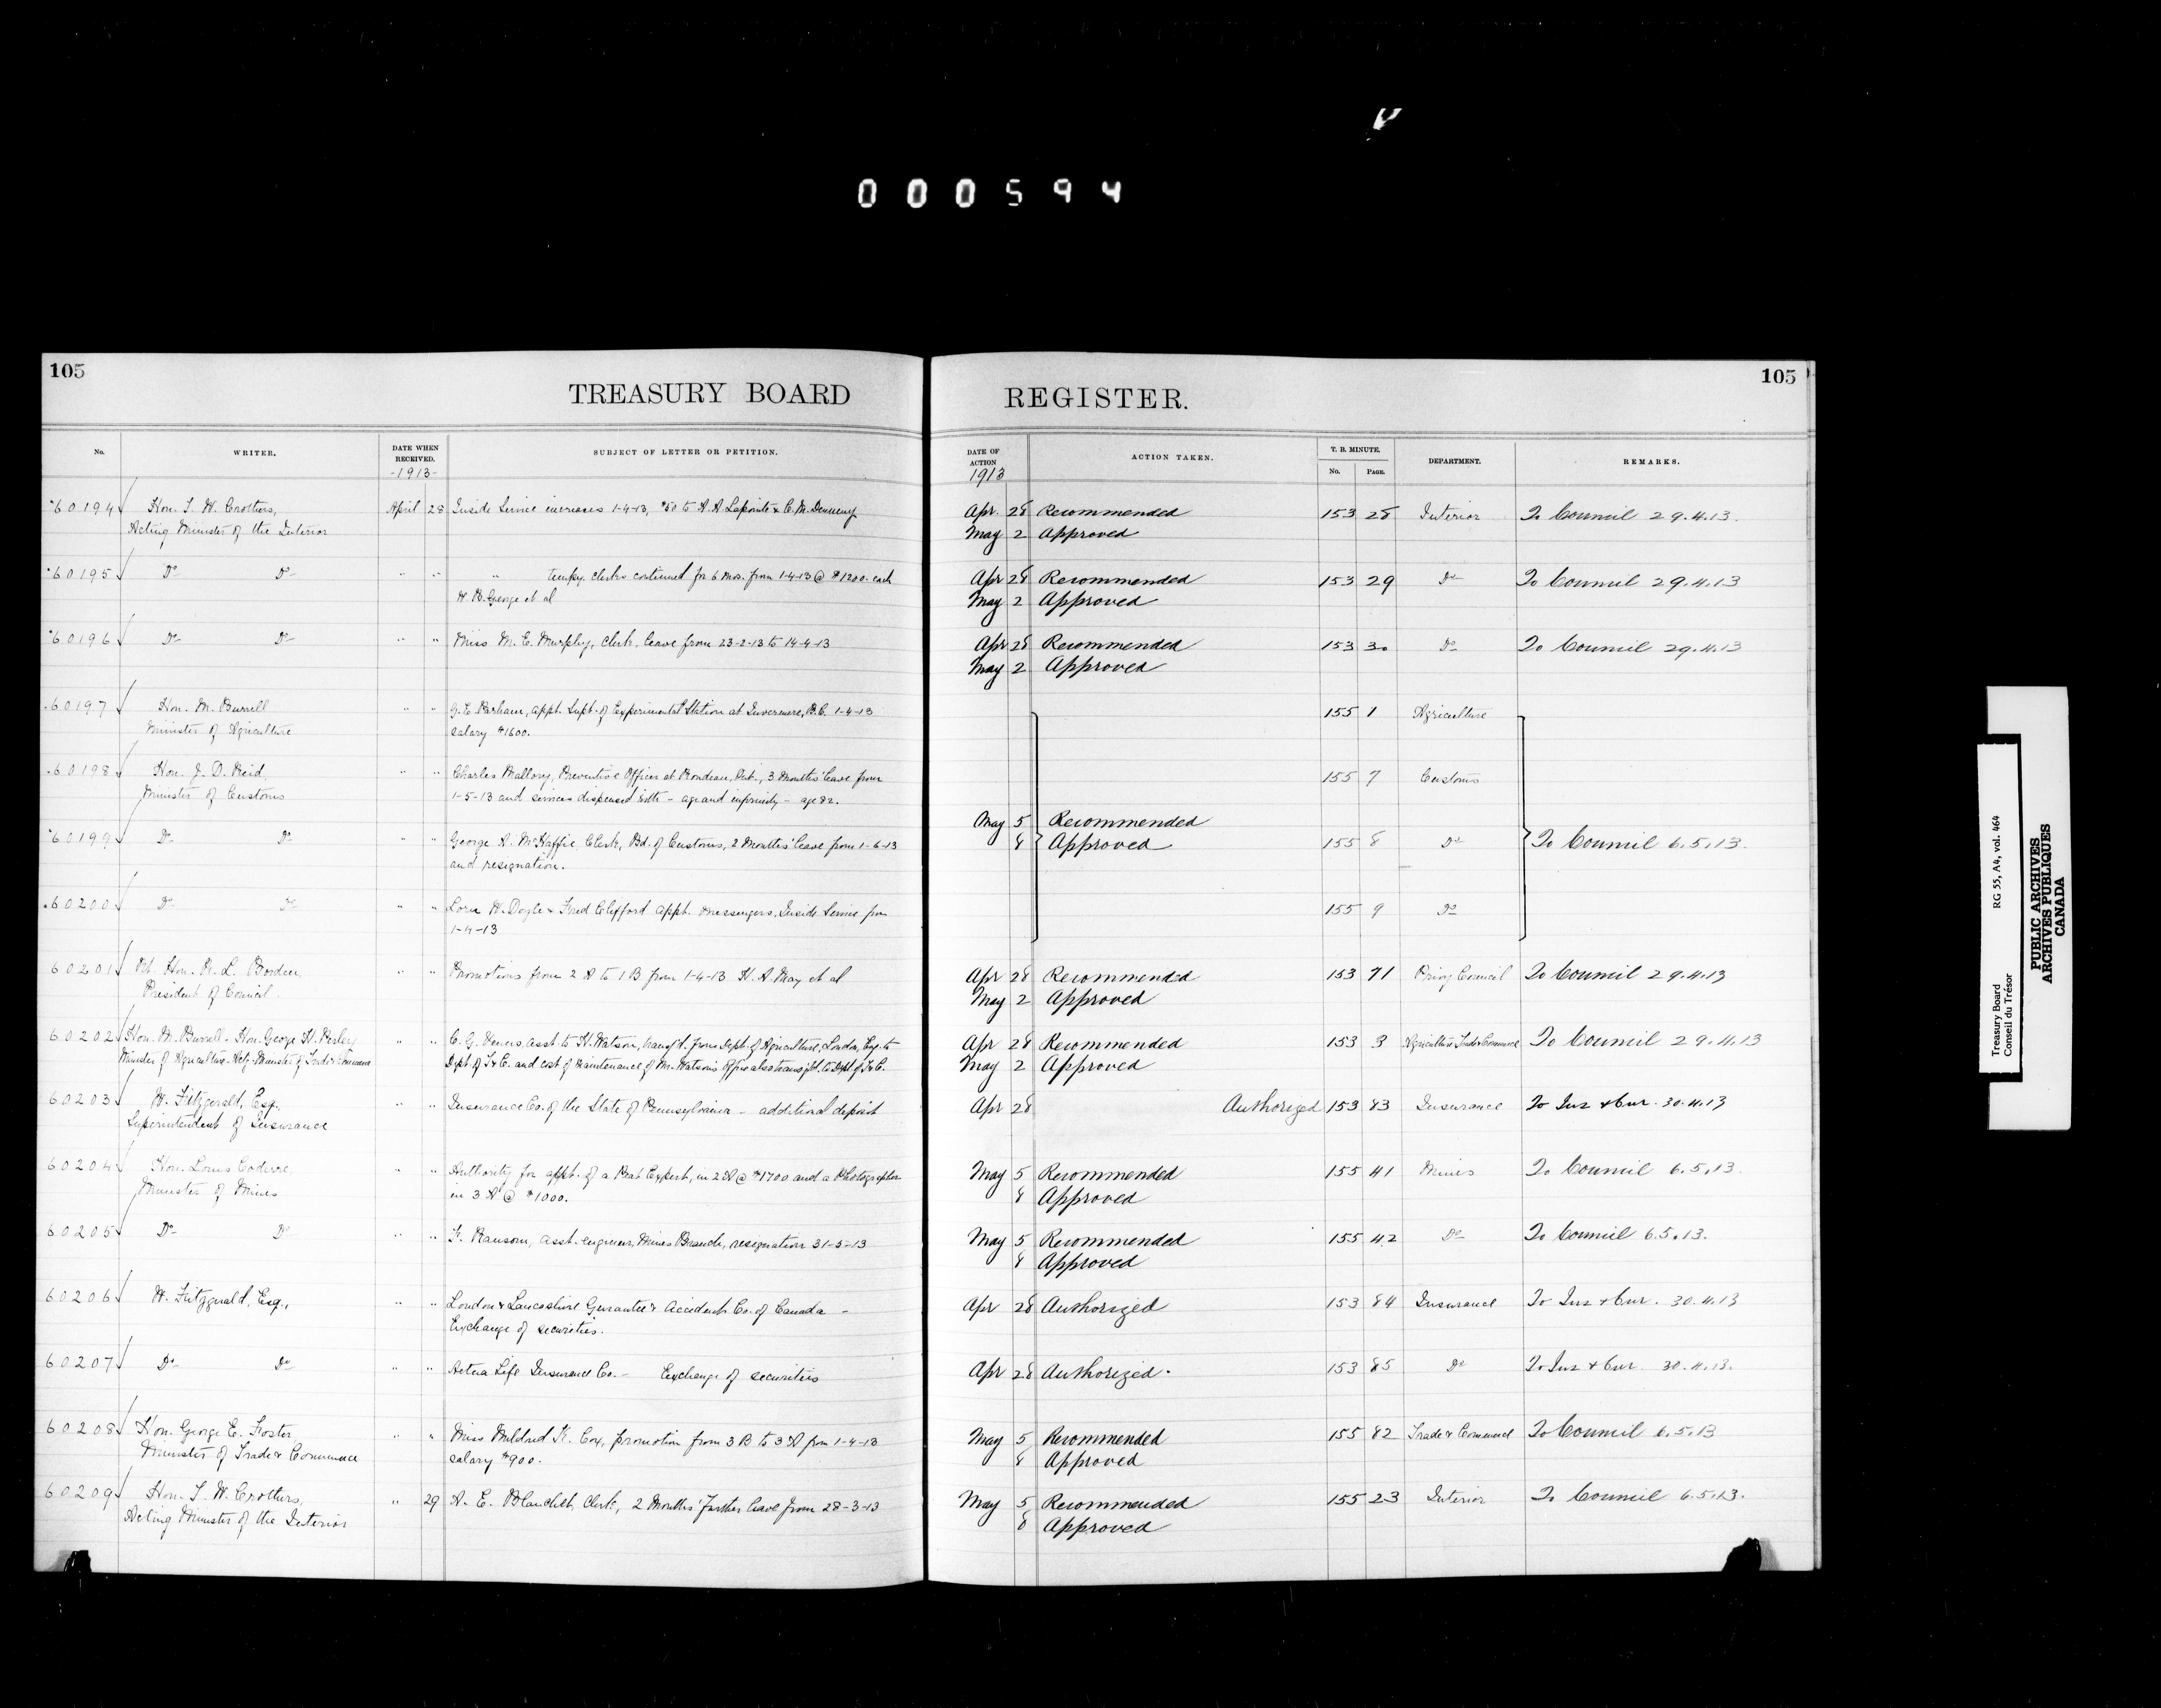 000594
105
TREASURY BOARD
REGISTER.
105
No.
WRITER.
DATE WHEN RECEIVED.
-1913-
SUBJECT OF LETTER OR PETITION.
DATE OF ACTION
1913
ACTION TAKEN.
T. B. MINUTE.
No.
PAGE.
DEPARTMENT.
REMARKS.
60194 Hon. T. W. Crothers, April 28 Inside Service increases 1-4-13, $50 to A. A. Lapointe & C. M. Apr. 28 Recommended 153 28 Interior To Council 29.4.13.
Acting Minister of the Interior May 2 Approved
60195 Do Do " " " tempy. clerks continued for 6 mos. from 1-4-13 @ $1200. each Apr 28 Recommended 153 29 Do To Council 29.4.13
W. B. George et al May 2 Approved
60196 Do Do " " Miss M. E. Murphy, clerk, leave from 23-2-13 to 14-4-13 Apr 28 Recommended 153 30 Do To Council 29.4.13
May 2 Approved
60197 Hon. M. Burrell " " G. E. Parham, appt. Supt. of Experimental Station at Invermere, B.C. 1-4-13 155 1 Agriculture
Minister of Agriculture salary $1600.
60198 Hon. J. D. Reid, " " Charles Mallory, Preventive Officer at Rondeau, Ont., 3 Months' leave from 155 7 Customs
Minister of Customs 1-5-13 and services dispensed with - age and infirmity - age 82.
May 5 Recommended
60199 Do Do " " George A. McHaffie, Clerk, Bd. of Customs, 2 Months' leave from 1-6-13 8 Approved 155 8 Do To Council 6.5.13.
and resignation.
60200 Do Do " " Lorn W. Doyle & Fred Clifford appt. messengers, Inside Service from 155 9 Do
1-4-13
60201 Rt. Hon. R. L. Borden, " " Promotions from 2 A to 1 B from 1-4-13 H. A. May et al Apr 28 Recommended 153 71 Privy Council To Council 29.4.13
President of Council. May 2 Approved
60202 Hon. M. Burrell - Hon. George H. Perley " " C. G. asst. to H. Watson, transf'd. from Dept. of Agriculture, London, Eng. to Apr 28 Recommended 153 3 Agriculture Trade & Commerce To Council 29.4.13
Minister of Agriculture - Actg. Minister of Trade & Commerce Dept. of T & C. and cost of Maintenance of Mr. Watson's office also to Dept. of T & C. May 2 Approved
60203 W. Fitzgerald, Esq., " " Insurance Co. of the State of Pennsylvania - additional deposit Apr 28 Authorized 153 83 Insurance To Ins & Cur. 30.4.13
Superintendent of Insurance
60204 Hon. Louis Coderre, " " Authority for appt. of a Peat Expert, in 2 A @ $1700 and a Photographer May 5 Recommended 155 41 Mines To Council 6.5.13.
Minister of Mines in 3 A @ $1000. 8 Approved
60205 Do Do " " F. Ransom, asst. engineer, Mines Branch, resignation 31-5-13 May 5 Recommended 155 42 Do To Council 6.5.13.
8 Approved
60206 W. Fitzgerald, Esq., " " London & Lancashire Guarantee & Accident Co. of Canada - Apr 28 Authorized 153 84 Insurance To Ins & Cur. 30.4.13
Exchange of securities.
60207 Do Do " " Aetna Life Insurance Co. - Exchange of securities Apr 28 Authorized. 153 85 Do To Ins & Cur 30.4.13.
60208 Hon. George E. Foster, " " Miss Mildred K. Cox, promotion from 3 B to 3 A from 1-4-13 May 5 Recommended 155 82 Trade & Commerce To Council 6.5.13
Minister of Trade & Commerce salary $900. 8 Approved
60209 Hon. T. W. Crothers, " 29 A. E. Blanchet, Clerk, 2 Months' further leave from 28-3-13 May 5 Recommended 155 23 Interior To Council 6.5.13.
Acting Minister of the Interior 8 Approved
Treasury Board RG 55, A4, vol. 464
Conseil du Trésor
PUBLIC ARCHIVES
ARCHIVES PUBLIQUES
CANADA